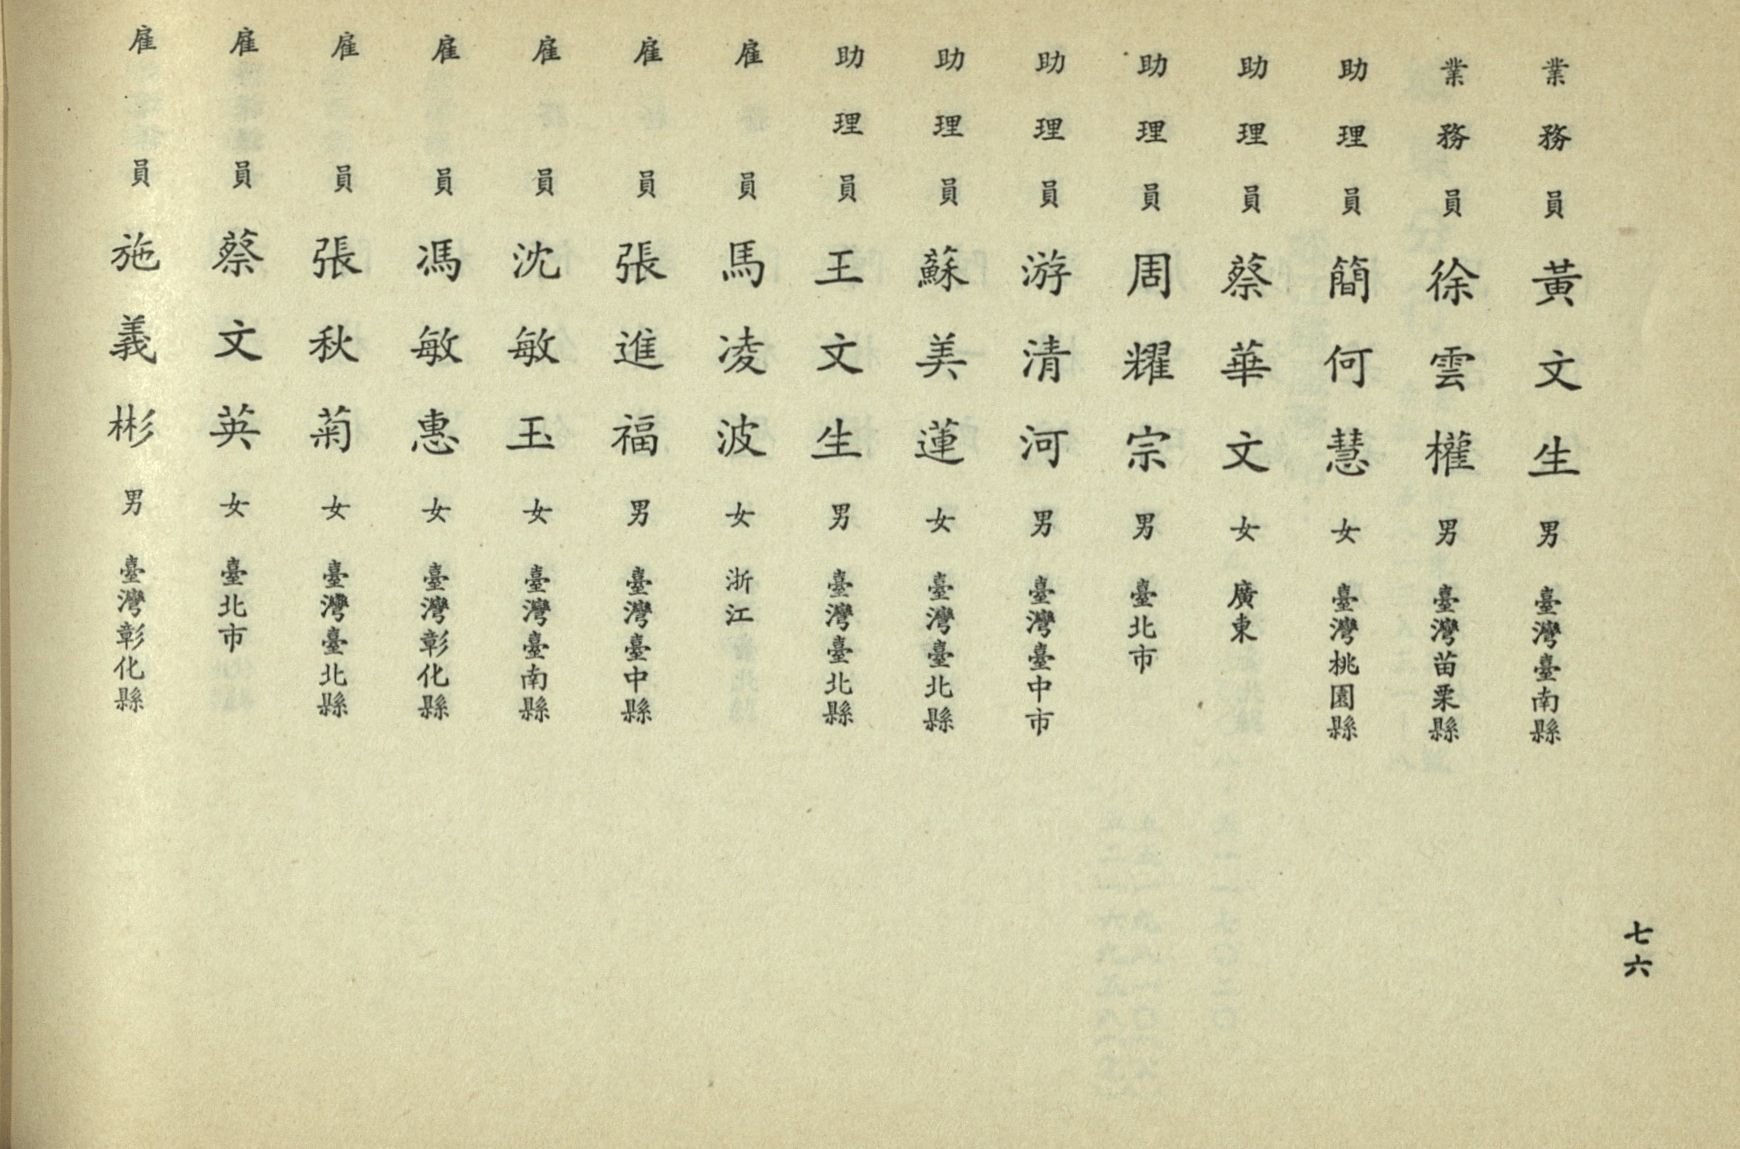 業務員 黃文生 男 臺灣臺南縣
業務員 徐雲權 男 臺灣苗栗縣
助理員 簡何慧 女 臺灣桃園縣
助理員 蔡華文 女 廣東
助理員 周耀宗 男 臺北市
助理員 游清河 男 臺灣臺中市
助理員 蘇美蓮 女 臺灣臺北縣
助理員 王文生 男 臺灣臺北縣
雇員 馬凌波 女 浙江
雇員 張進福 男 臺灣臺中縣
雇員 沈敏玉 女 臺灣臺南縣
雇員 馮敏惠 女 臺灣彰化縣
雇員 張秋菊 女 臺灣臺北縣
雇員 蔡文英 女 臺北市
雇員 施義彬 男 臺灣彰化縣
七六